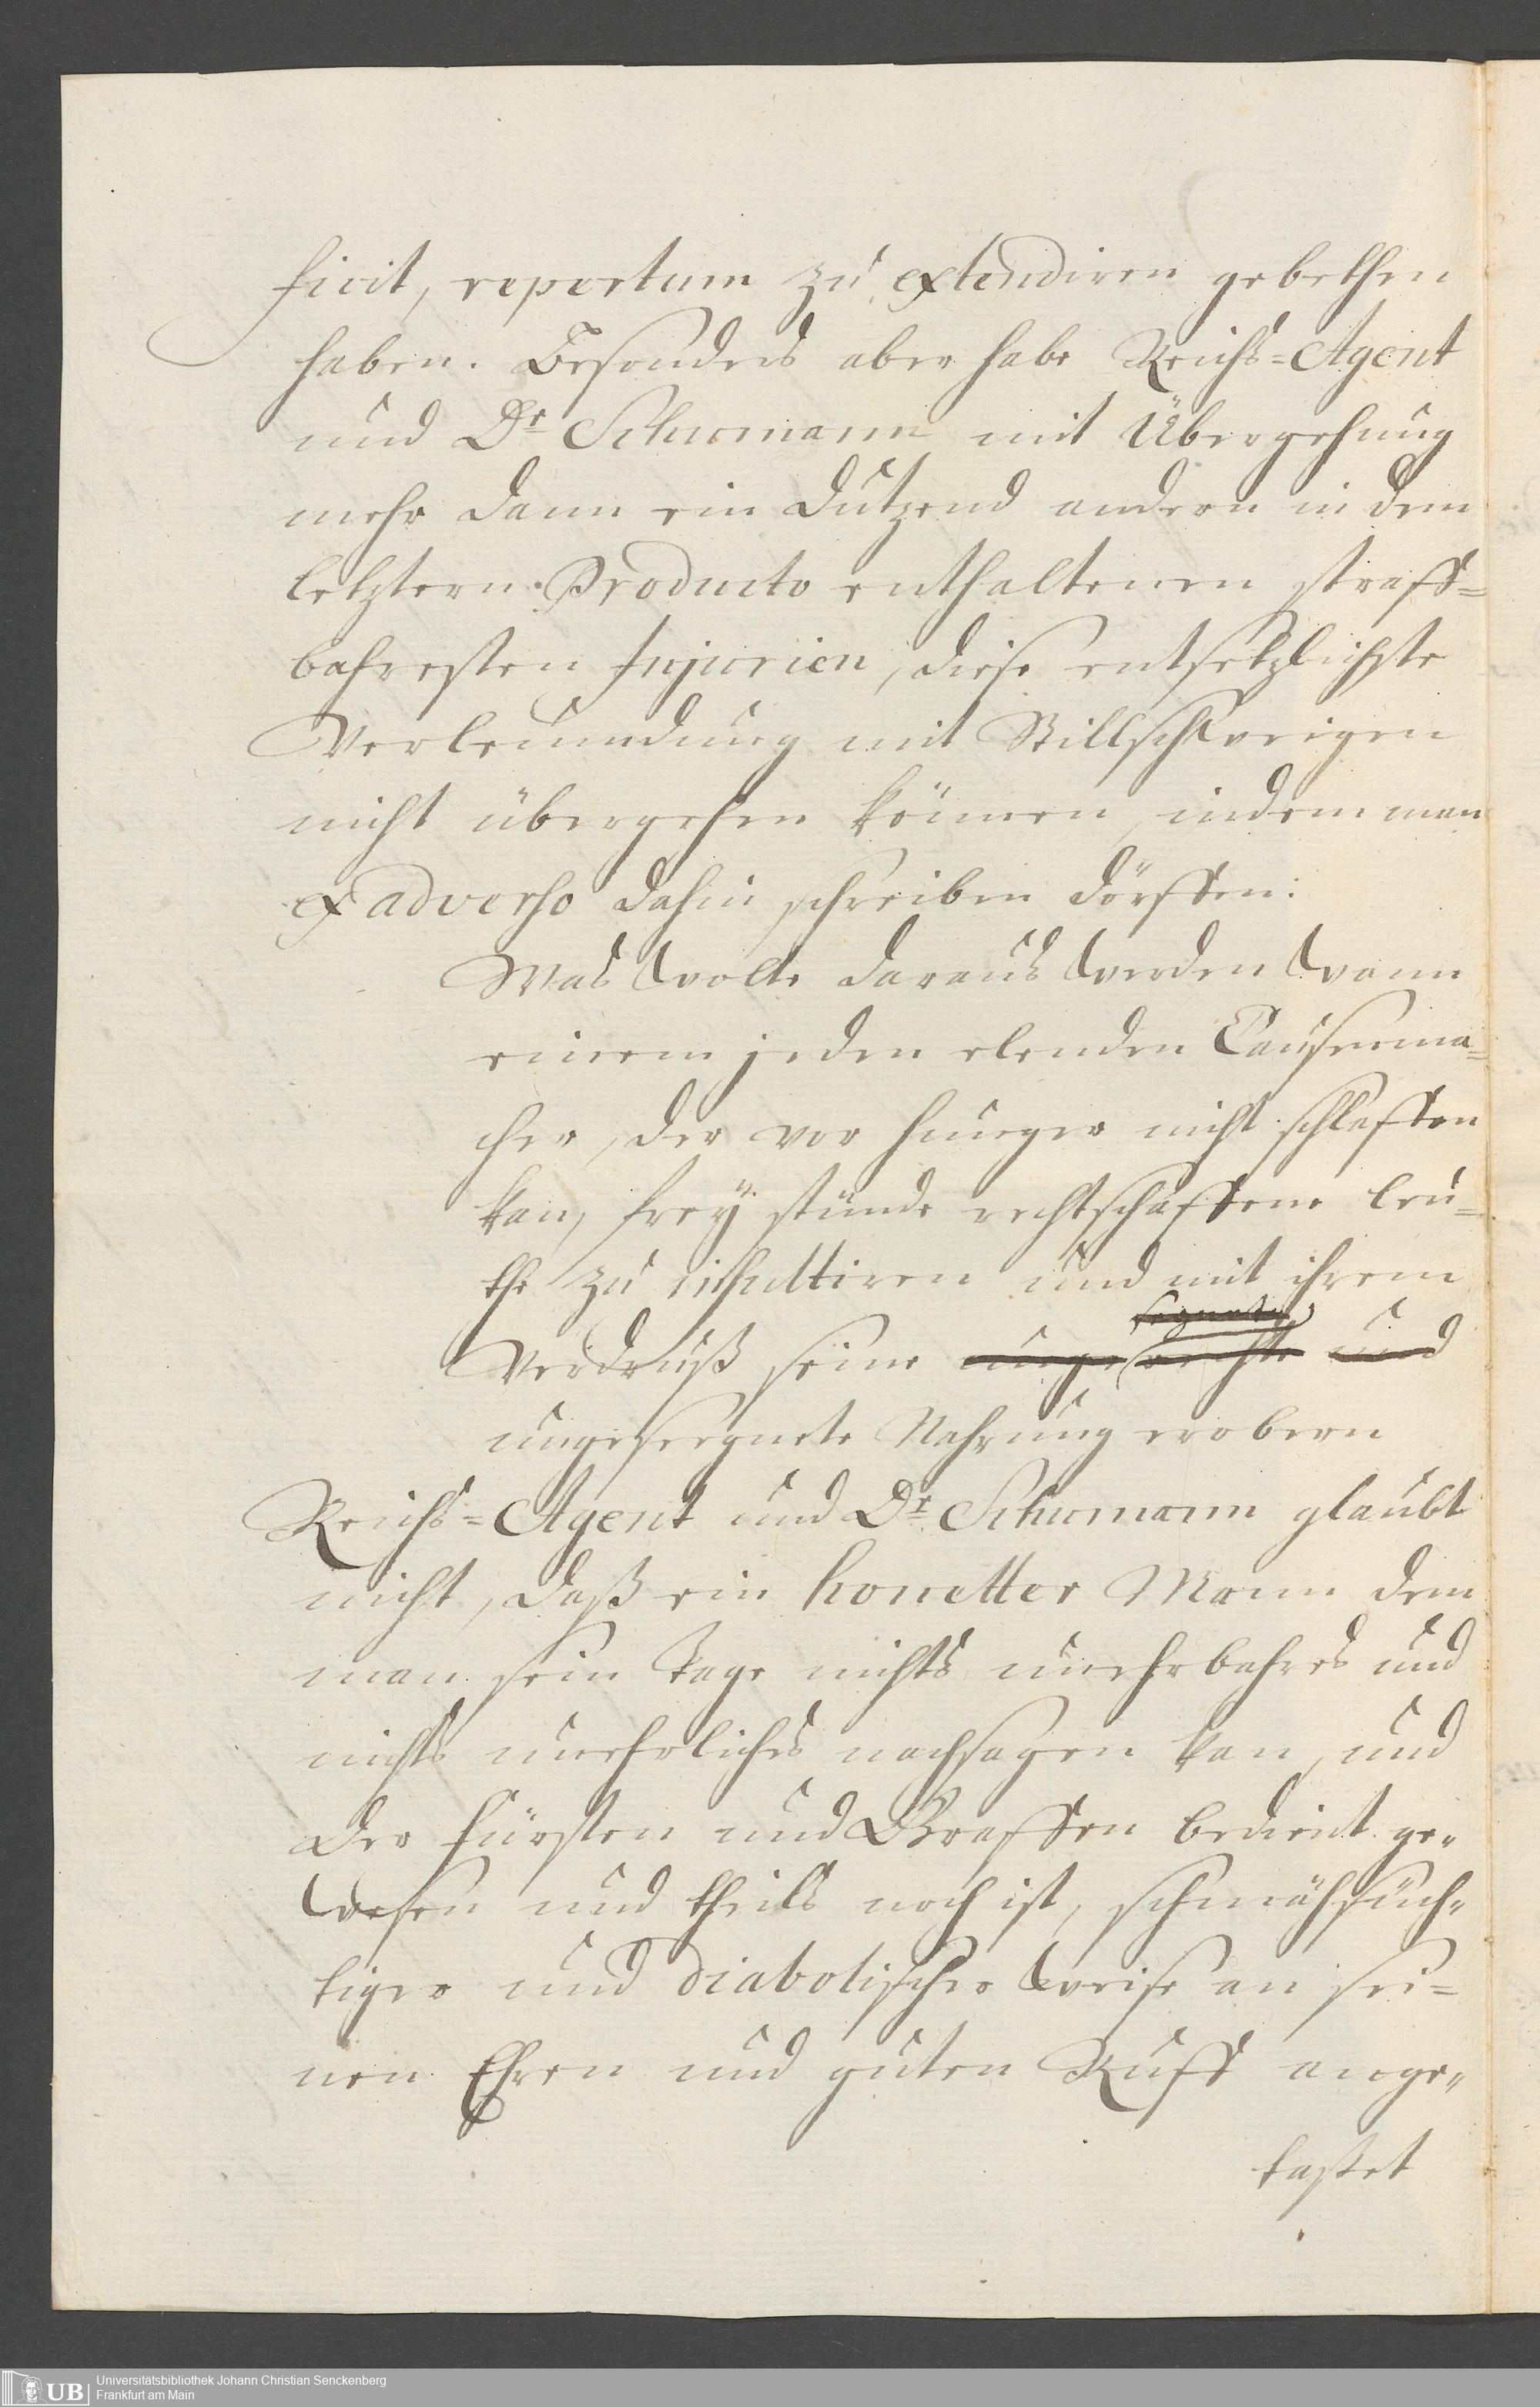 ficit, repertum zu extendiren gebethen
haben. Besonders aber habe Reichs=Agent
und Dr. Schumann mit Übergehung
mehr dann ein Dutzend andern in dem
letztern Producto enthaltenen straff=
bahresten Injurien, diese entsetzlichste
Verleumdung mit Stillschweigen
nicht übergehen können, indem man
ex adverso dahin schreiben dörffen:
Was wolte daraus werden wann
einem jeden elenden Causenma=
cher, der vor Hunger nicht schlaffen
kan, frey stünde rechtschaffene Leu=
the zu insultiren und mit ihrem
Verdruß seine ungerechte und
ungeseegnete Nahrung erobern
Reichs=Agent und Dr. Schumann glaubt
nicht, daß ein honetter Mann dem
man sein Tage nichts unehrbahres und
nichts unehrliches nachsagen kan, und
der Fürsten und Graffen bedient ge=
wesen und theils noch ist, schmähsüch=
tiger und diabolischer Weise an sei=
nen Ehren und guten Ruff ange=
tastet
UB Universitätsbibliothek Johann Christian Senckenberg
Frankfurt am Main